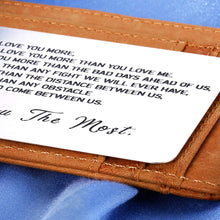 LOVE YOU MORE,
LOVE YOU MORE THAN YOU LOVE ME.
THAN THE BAD DAYS AHEAD OF US,
THAN ANY FIGHT WE WILL EVER HAVE,
THAN THE DISTANCE BETWEEN US,
AN ANY OBSTACLE
D COME BETWEEN US.
The Most.